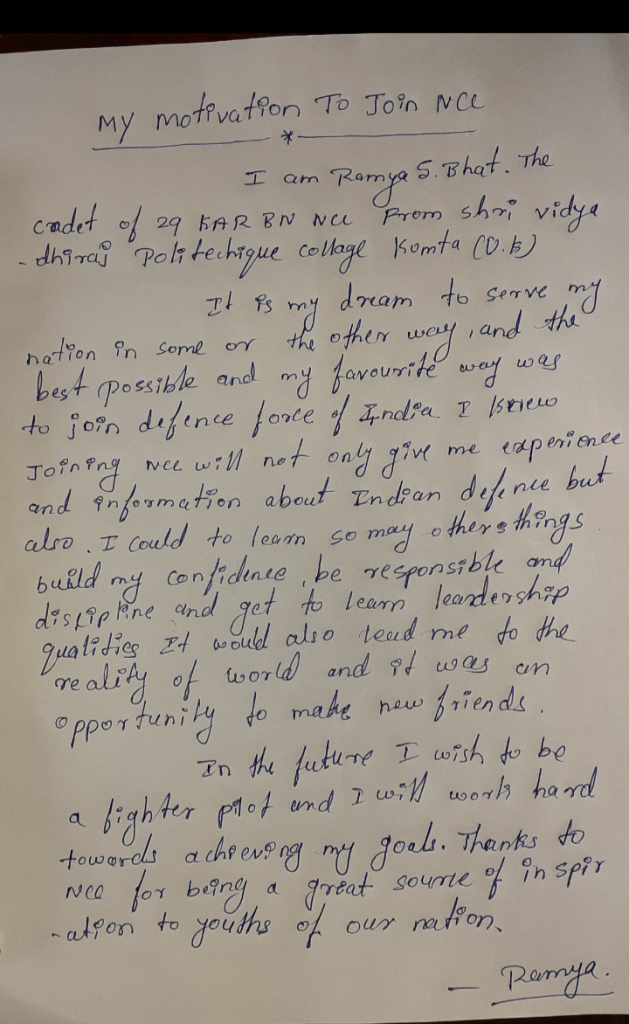 My motivation To Join NCC
*
I am Ramya S. Bhat. The
cadet of 29 KAR BN NCC From shri vidya
-dhiraj Politechique collage Kumta (U.K)
It is my dream to serve my
nation in some or the other way, and the
best possible and my favourite way was
to join defence force of India. I knew
Joining NCC will not only give me experience
and information about Indian defence but
also. I could to learn so may other things
build my confidence, be responsible and
discipline and get to learn leardership
qualities It would also lead me to the
reality of world and it was an
opportunity to make new friends.
In the future I wish to be
a fighter pilot and I will work hard
towards achieving my goals. Thanks to
NCC for being a great source of inspir
-ation to youths of our nation.
- Ramya.